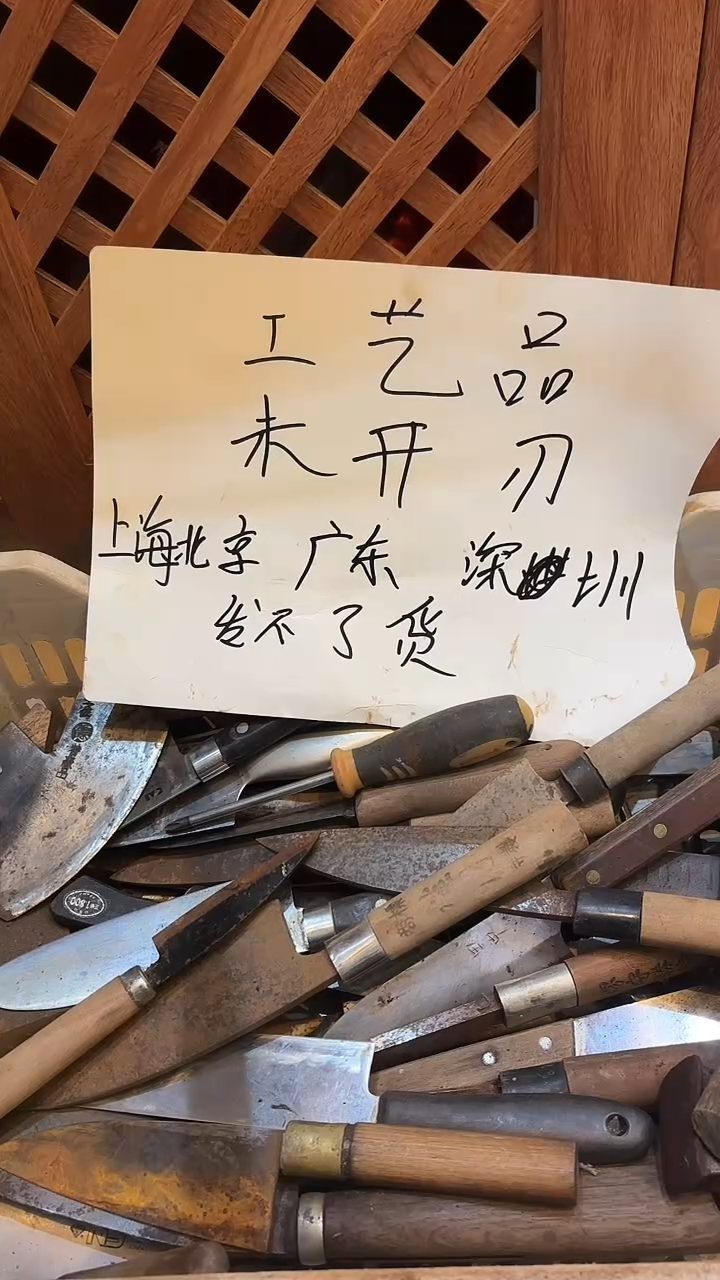 工艺品
未开刃
上海北京 广东 深圳
发不了货